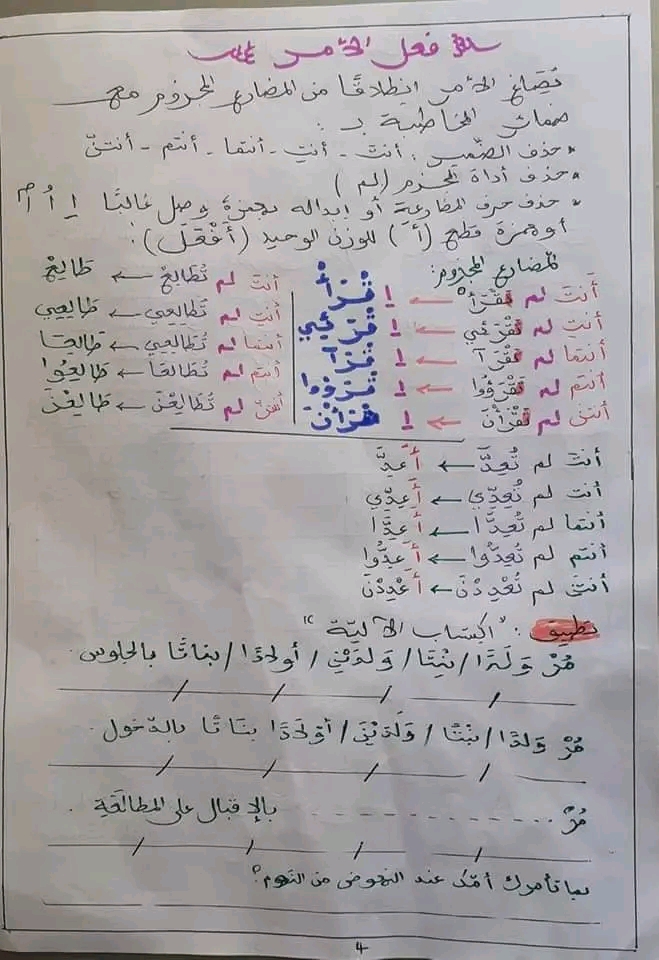 فعل الأمر
نُصَاغ الأمر انطلاقًا من المضارع المجزوم مع
ضمائر المخاطبة بـ :
• حذف الضّمير : أنتَ - أنتِ - أنتما - أنتم - أنتنّ
• حذف أداة الجزم ( لم )
• حذف حرف المضارعة أو إبداله بهمزة وصل غالبًا اِ اُ
أو همزة قطع (أَ) للوزن الوحيد (أَفْعَلَ) :
المضارع المجزوم:
أنتَ لم تَقْرَأْ ← اِقْرَأْ
أنتِ لم تَقْرَئي ← اِقْرَئي
أنتما لم تَقْرَآ ← اِقْرَآ
أنتم لم تَقْرَؤُوا ← اِقْرَؤوا
أنتنّ لم تَقْرَأْنَ ← اِقْرَأْنَ
أنتَ لم تُطَالِعْ ← طَالِعْ
أنتِ لم تُطَالِعِي ← طَالِعِي
أنتما لم تُطَالِعِي ← طَالِعَا
أنتم لم تُطَالِعَا ← طَالِعُوا
لم تُطَالِعْنَ ← طَالِعْنَ
أنتَ لم تُعِدَّ ← أَعِدَّ
أنت لم تُعِدِّي ← أَعِدِّي
أنتما لم تُعِدَّا ← أَعِدَّا
أنتم لم تُعِدُّوا ← أَعِدُّوا
أنتنّ لم تُعْدِدْنَ ← أَعْدِدْنَ
تطبيق : "اكتساب الآليّة"
مُرْ وَلَدًا / بِنْتًا / وَلَدَيْنِ / أولادًا / بناتًا بالجلوس.
مُرْ وَلدًا / بنْتًا / وَلَدَيْنِ / أوْلَادًا بنَاتًا بالدّخول.
مُرْ ........... بالإقبال على المطالعَةِ .
بما تأمرك أمّك عند النهوض من النّوم؟
4